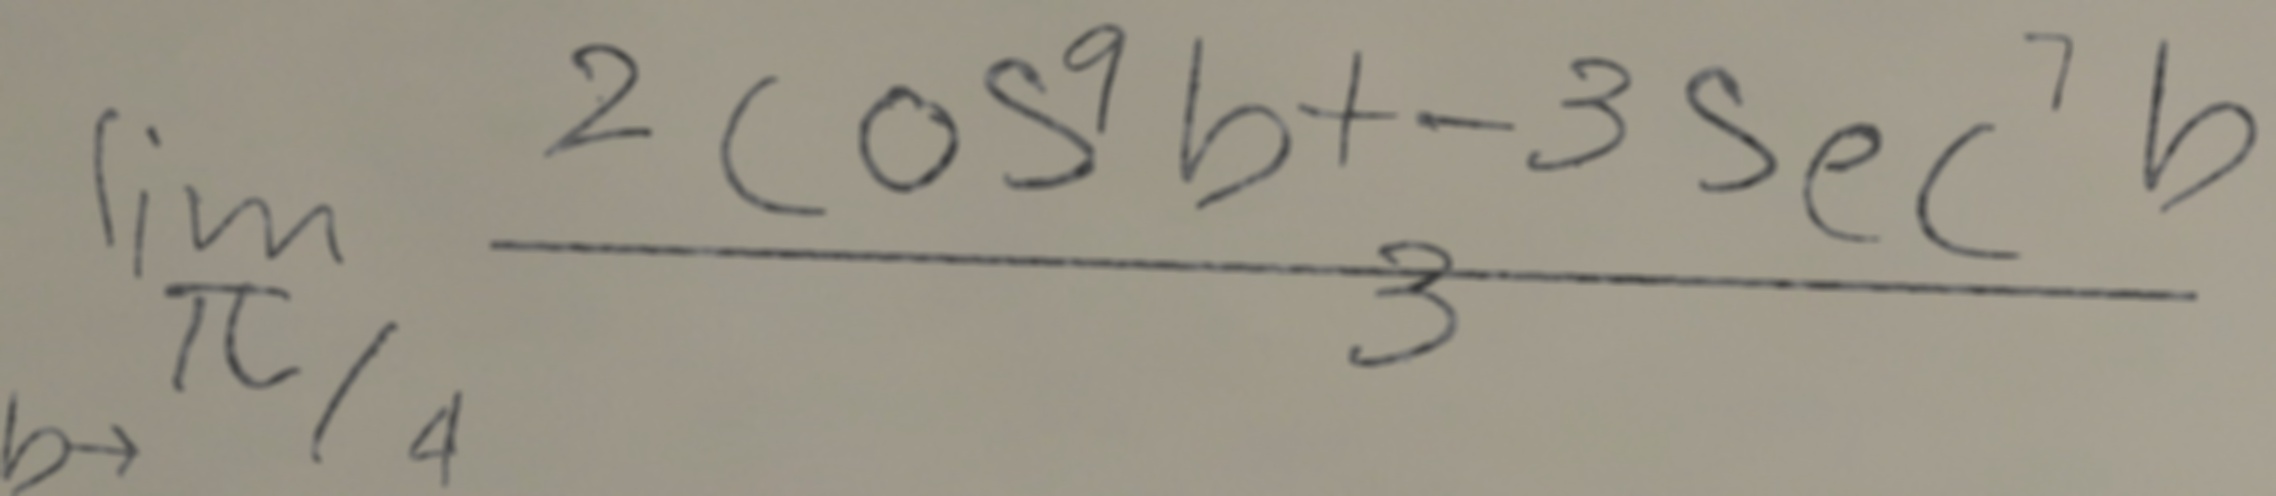 \lim_{b \to \pi/4} \frac{2 \cos^9 b + -3 \sec^7 b}{3}